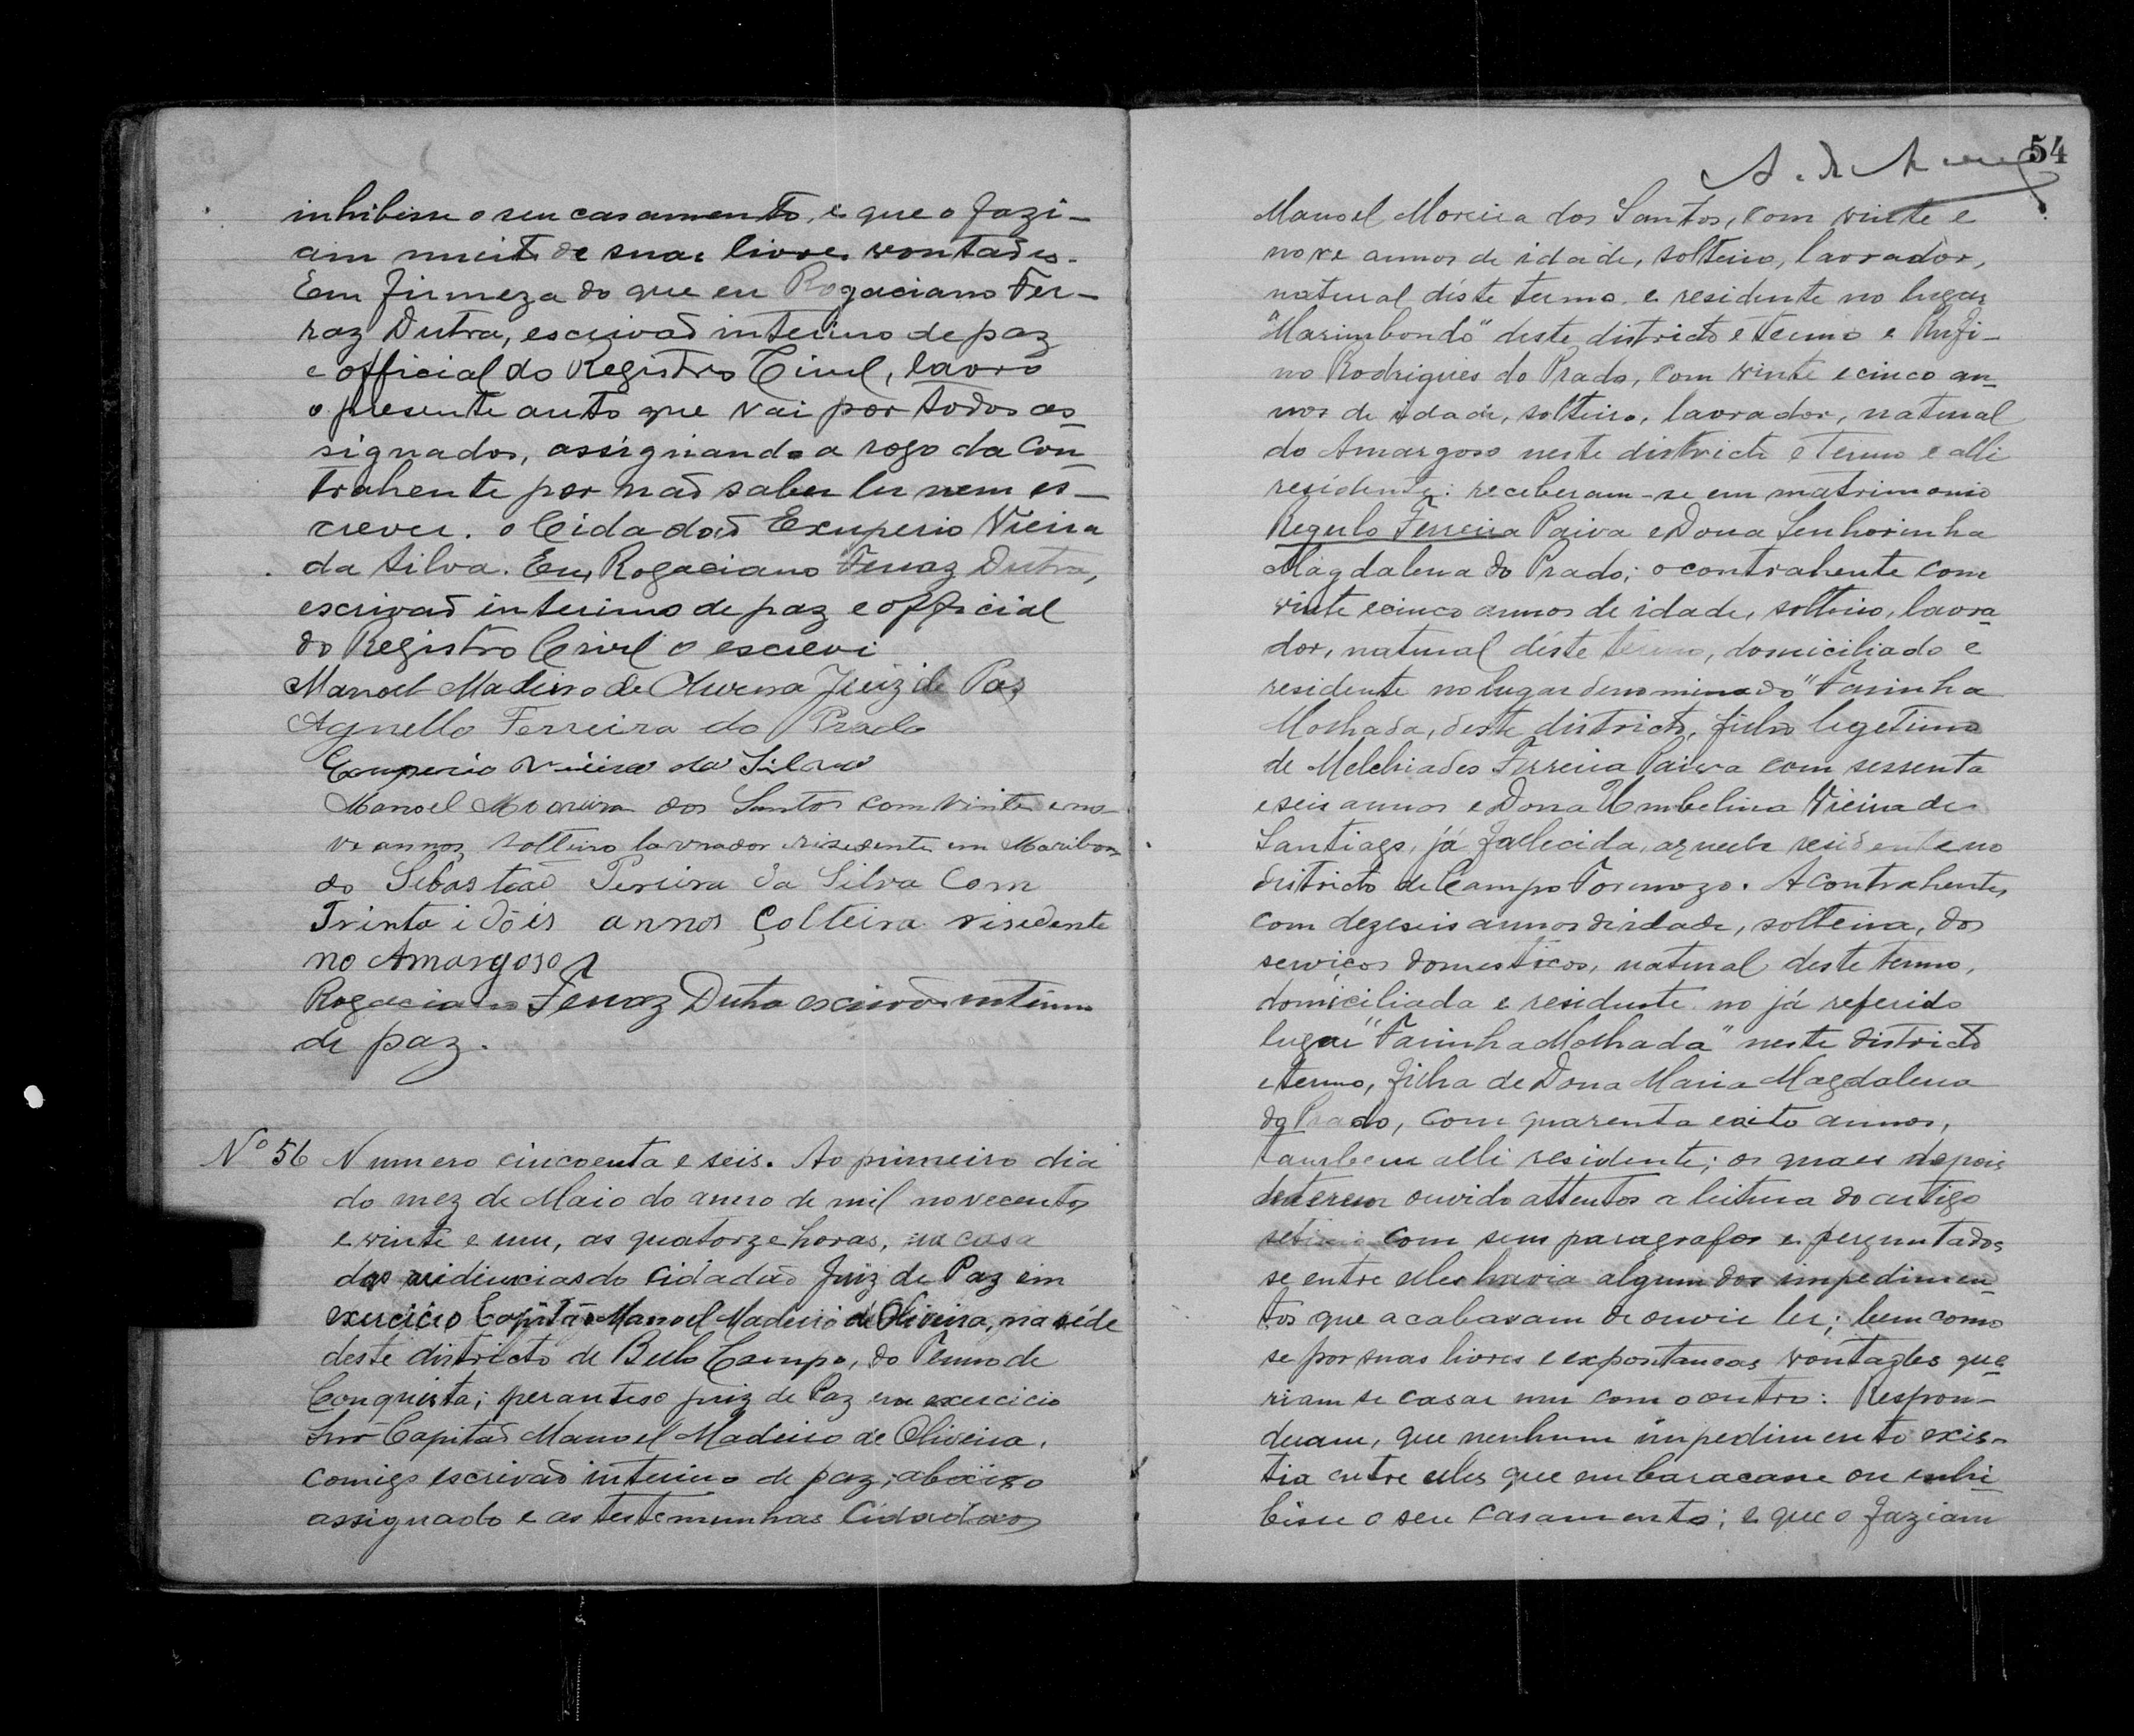 inhibisse o seu casamento, e que o fazi-
am muito de suas livres vontades.
Em firmeza do que eu Rogaciano Fer-
raz Dutra, escrivaõ interino de paz
e official do Registro Civil, lavro
o presente auto que vai por todos as
signados, assignando a rogo da Con
trahente por naõ saber ler nem es-
crever. o Cidadaõ Exuperio Vieira
da Silva. Eu, Rogaciano Ferraz Dutra,
escrivaõ interino de paz e official
do Registro Civil o escrevi
Manoel Madeiro de Oliveira Juiz de Paz
Agnello Ferreira do Prado
Exuperio Vieira da Silva
Manoel Moreira dos Santos com vinte e no-
ve annos solteiro lavrador risidente em Maribon
do Sebastiaõ Pereira da Silva Com
Trinta i dois annos Çolteiro risidente
no Amargoso
Rogaciano Ferraz Dutra escrivaõ interino
de paz.
Nº 56 Numero cincoenta e seis. Ao primeiro dia
do mez de Maio do anno de mil novecentos
e vinte e um, as quatorze horas, na casa
das audiencias do Cidadaõ Juiz de Paz em
exercicio Capitaõ Manoel Madeiro de Oliveira, na séde
deste districto de Bello Campo, do Termo de
Conquista; perante o juiz de Paz em exercicio
Snr Capitaõ Manoel Madeiro de Oliveira,
comigo escrivaõ interino de paz, abaixo
assignado e as testemunhas Cidadaos
54
Manoel Moreira dos Santos, com vinte e
nove annos de idade, solteiro, lavrador,
natural déste termo e residente no lugar
"Marimbondo" deste districto e termo e Rufi-
no Rodrigues do Prado, com vinte e cinco an
nos de idade, solteiro, lavrador, natural
do Amargoso neste districto e Termo e alli
residente: receberam-se em matrimonio
Regulo Ferreira Paiva e Dona Senhorinha
Magdalena do Prado; o contrahente com
vinte e cinco annos de idade, solteiro, lavra
dor, natural déste termo, domiciliado e
residente no lugar denominado "Farinha
Molhada, deste districto, filho legetimo
de Melchiades Ferreira Paiva com sessenta
e seis annos e Dona Umbelina Vieira de
Santiago, já fallecida, aquelle residente no
districto de Campo Formozo. A Contrahente,
com dezeseis annos de idade, solteira, dos
serviços domesticos, natural deste termo,
domiciliada e residente no já referido
lugar "Farinha Molhada" neste districto
e termo, filha de Dona Maria Magdalena
do Prado, com quarenta e oito annos,
tambem alli residente; os quaes depois
de terem ouvido attentos a leitura do artigo
setimo com seus paragrafos e perguntados
se entre elles havia algum dos impedimen
tos que acabavam de ouvir ler; bem como
se por suas livres e expontaneas vontades que
riam se casar um com o outro: Respon-
deram, que nenhum impedimento exis-
tia entre elles que embaracasse ou inhi
bisse o seu casamento; e que o faziam